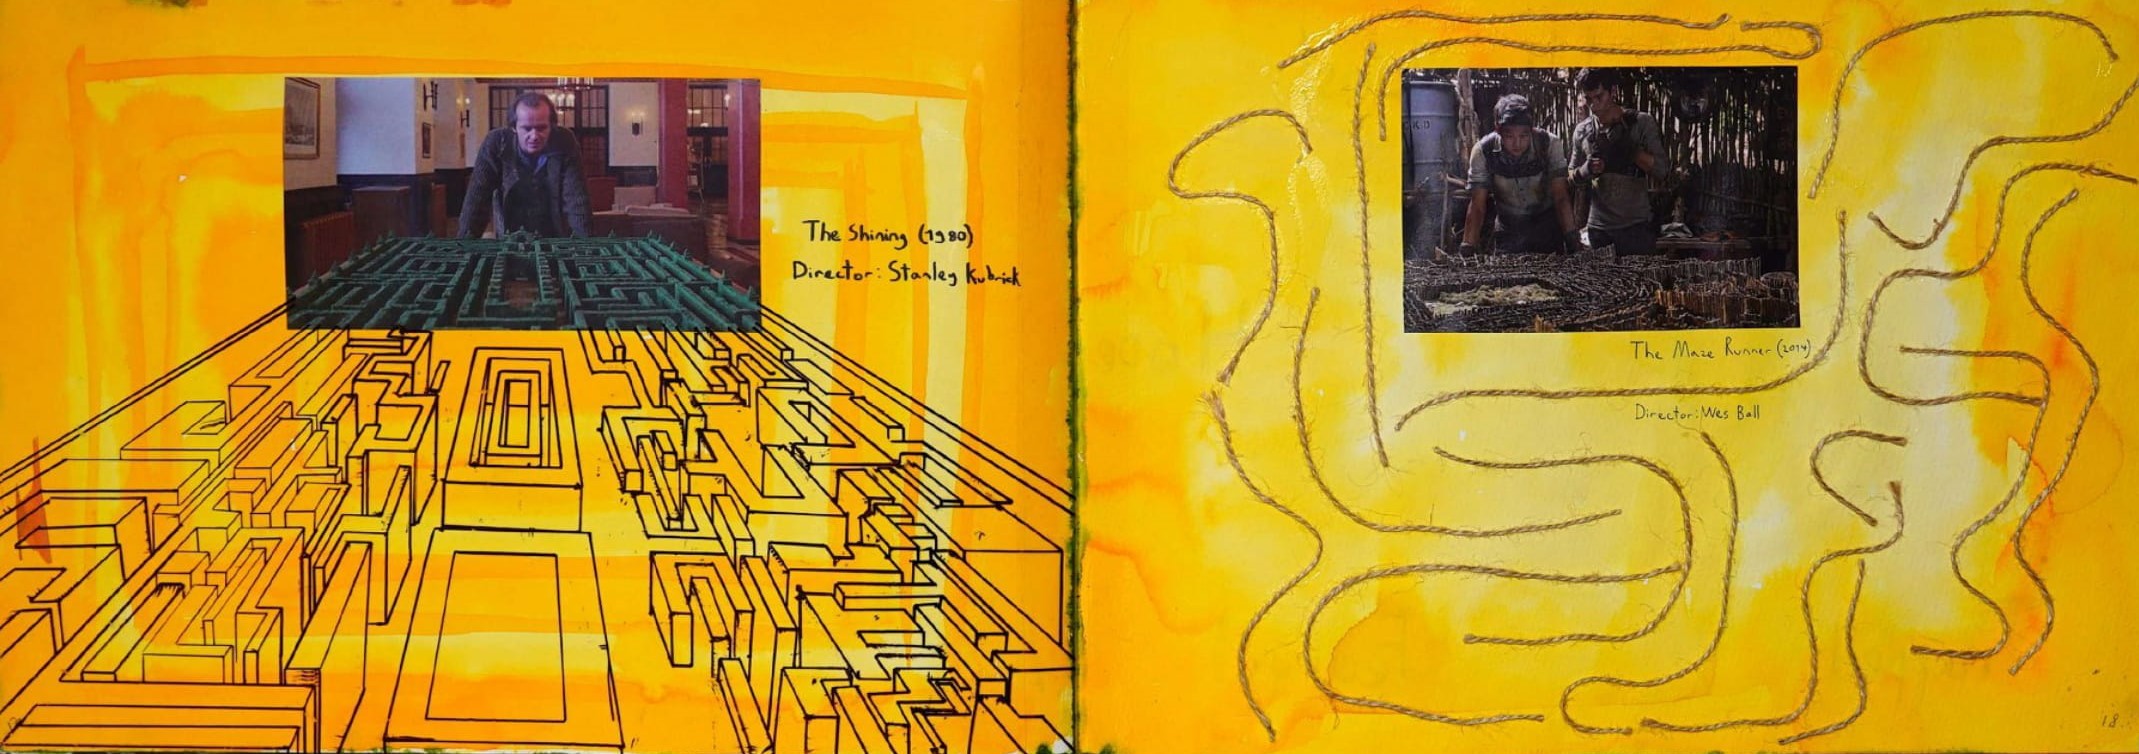 The Shining (1980)
Director: Stanley Kubrick
The Maze Runner (2014)
Director: Wes Ball
18